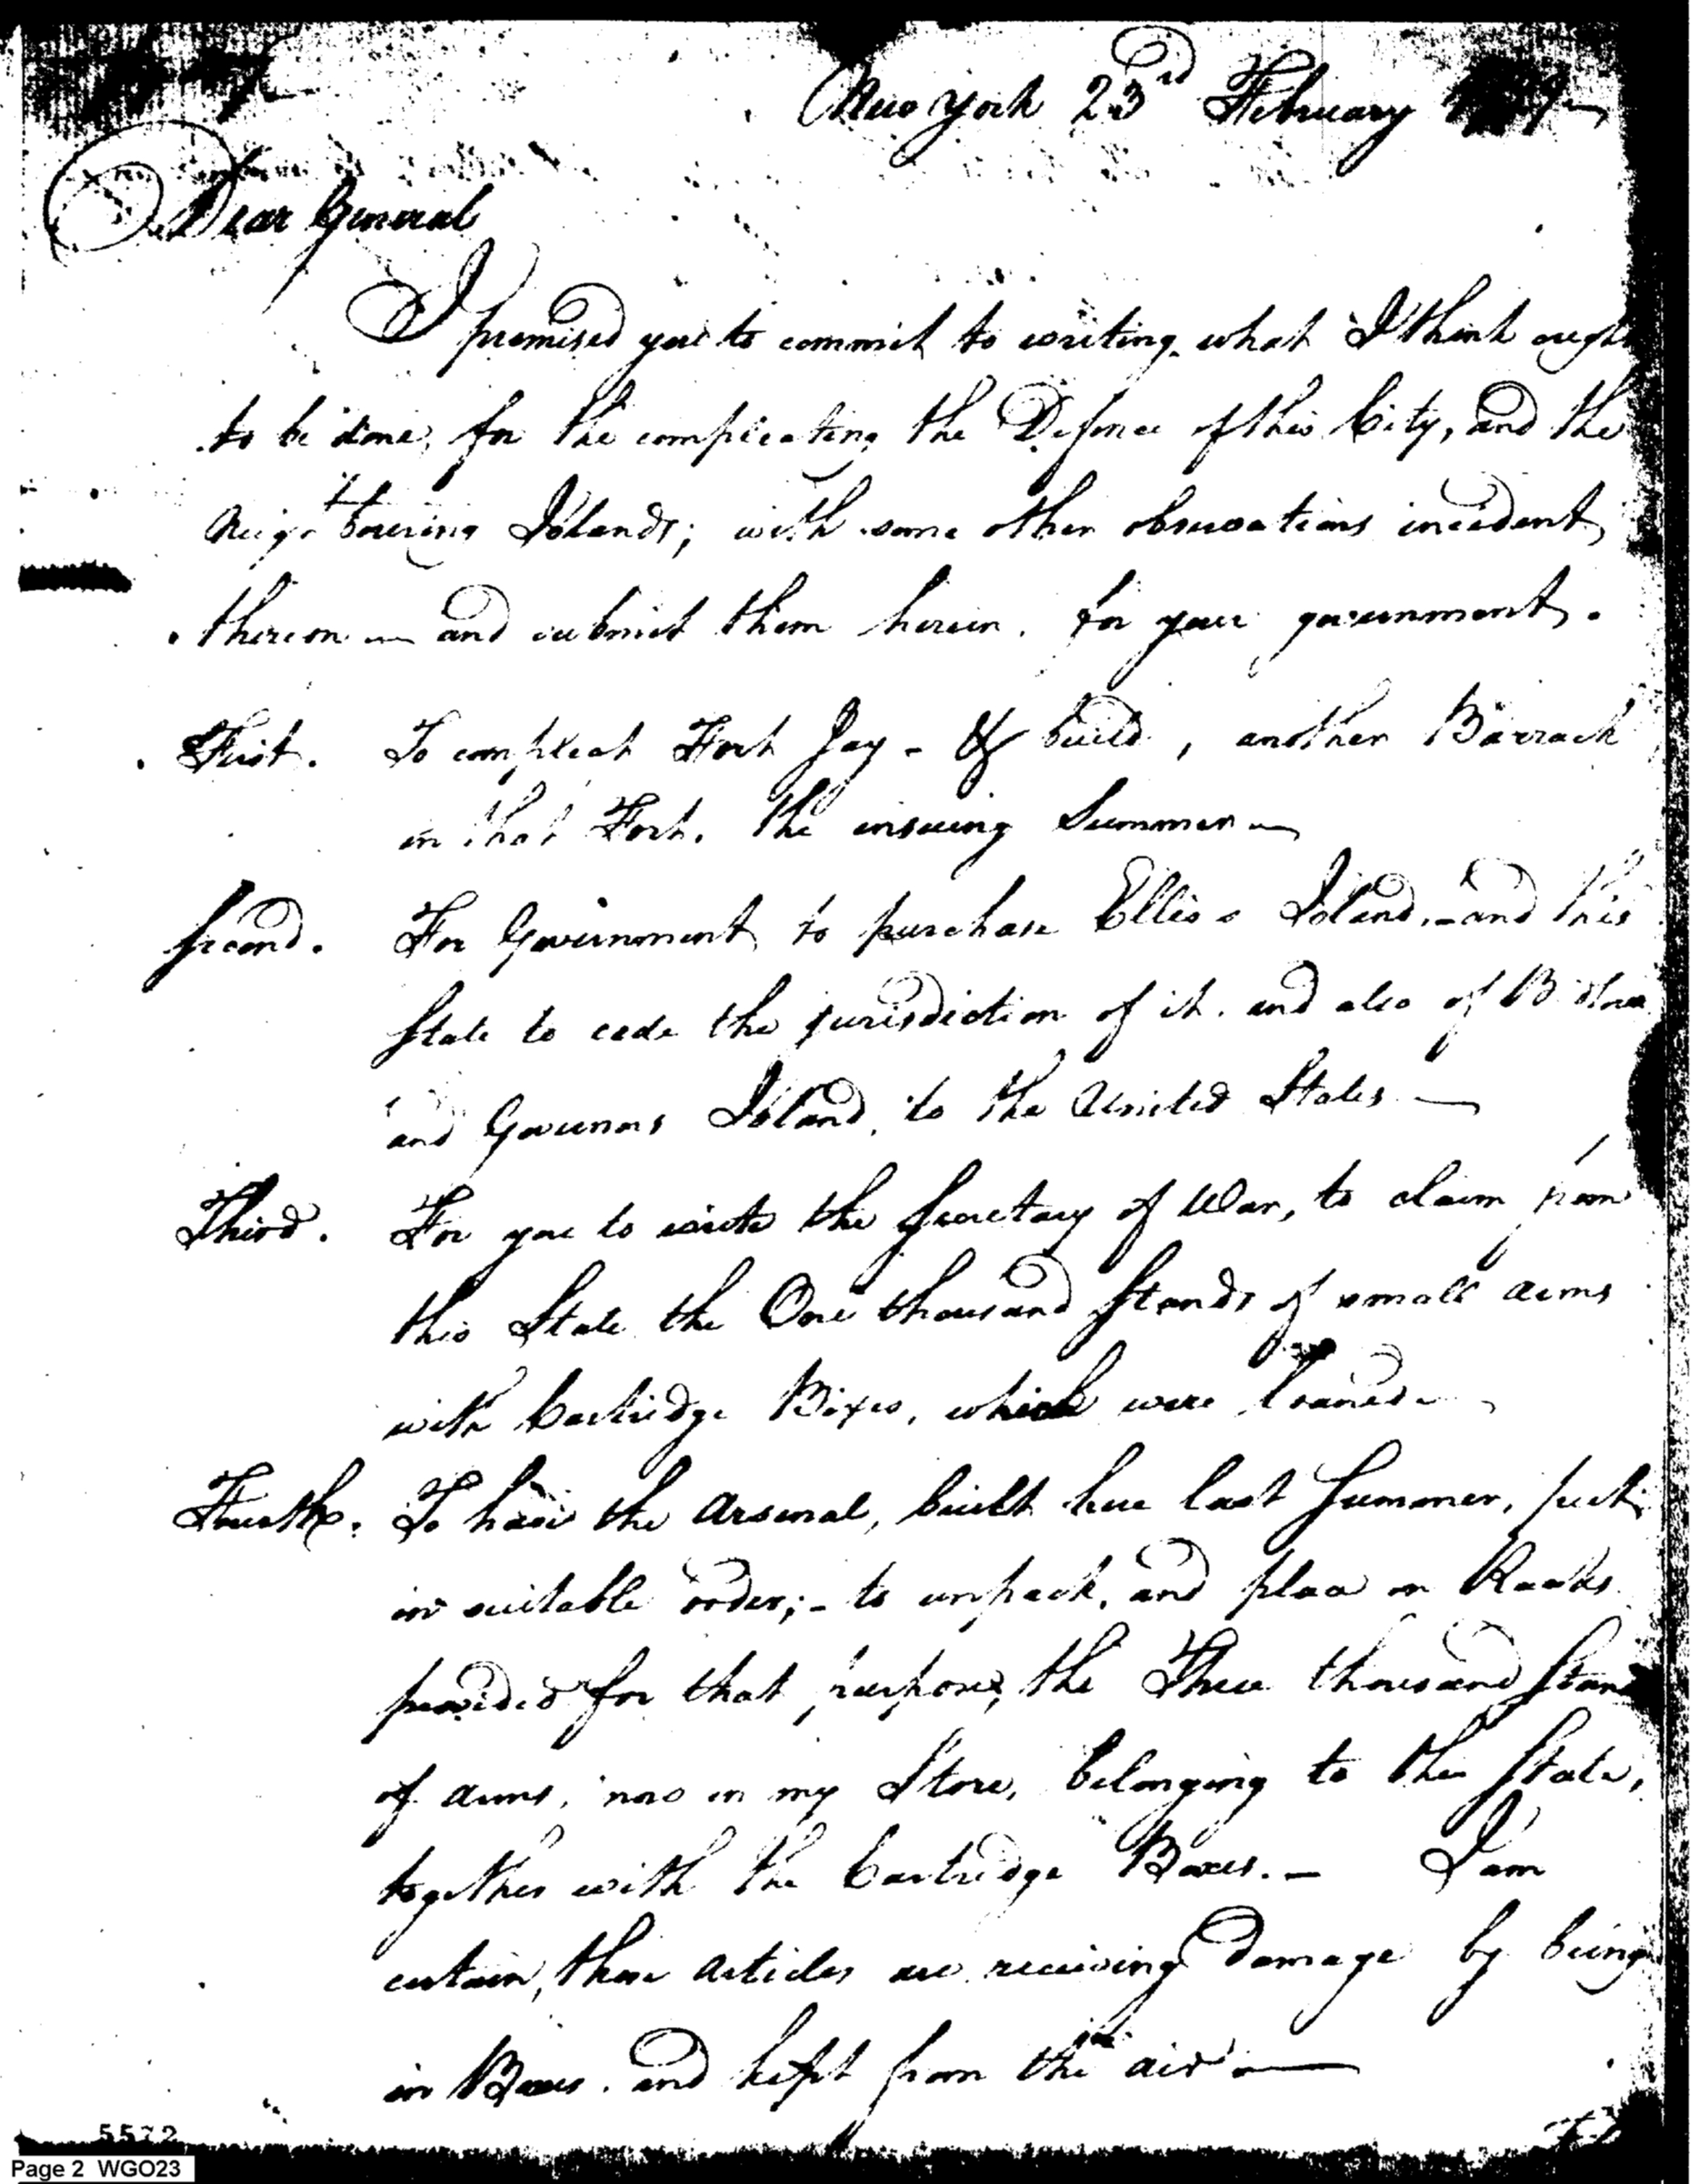 New York 23rd February
Dear General
I promised you to commit to writing what I think ought
to be done, for the compleating the Defence of this City, and the
Neighbouring Islands; with some other observations incident
thereon — and submit them herein, for your government.
First. To compleat Fort Jay - & build, another Barrack
in that Fort, the insuing Summer —
Second. For Government to purchase Ellis's Island, - and this
State to cede the jurisdiction of it, and also of Bedloes
and Governors Island, to the United States —
Third. For you to write the Secretary of War, to claim from
this State the One thousand Stands of small arms
with Cartridge Boxes, which were loaned —
Fourth. To have the Arsenal, built here last Summer, put
in suitable order; - to unpack, and place on Racks
provided for that purpose, the Three thousand Stand
of arms, now in my Store, belonging to the State,
together with the Cartridge Boxes. — I am
certain, these articles are receiving damage by being
in Boxes, and kept from the air —
5572
Page 2 WGO23